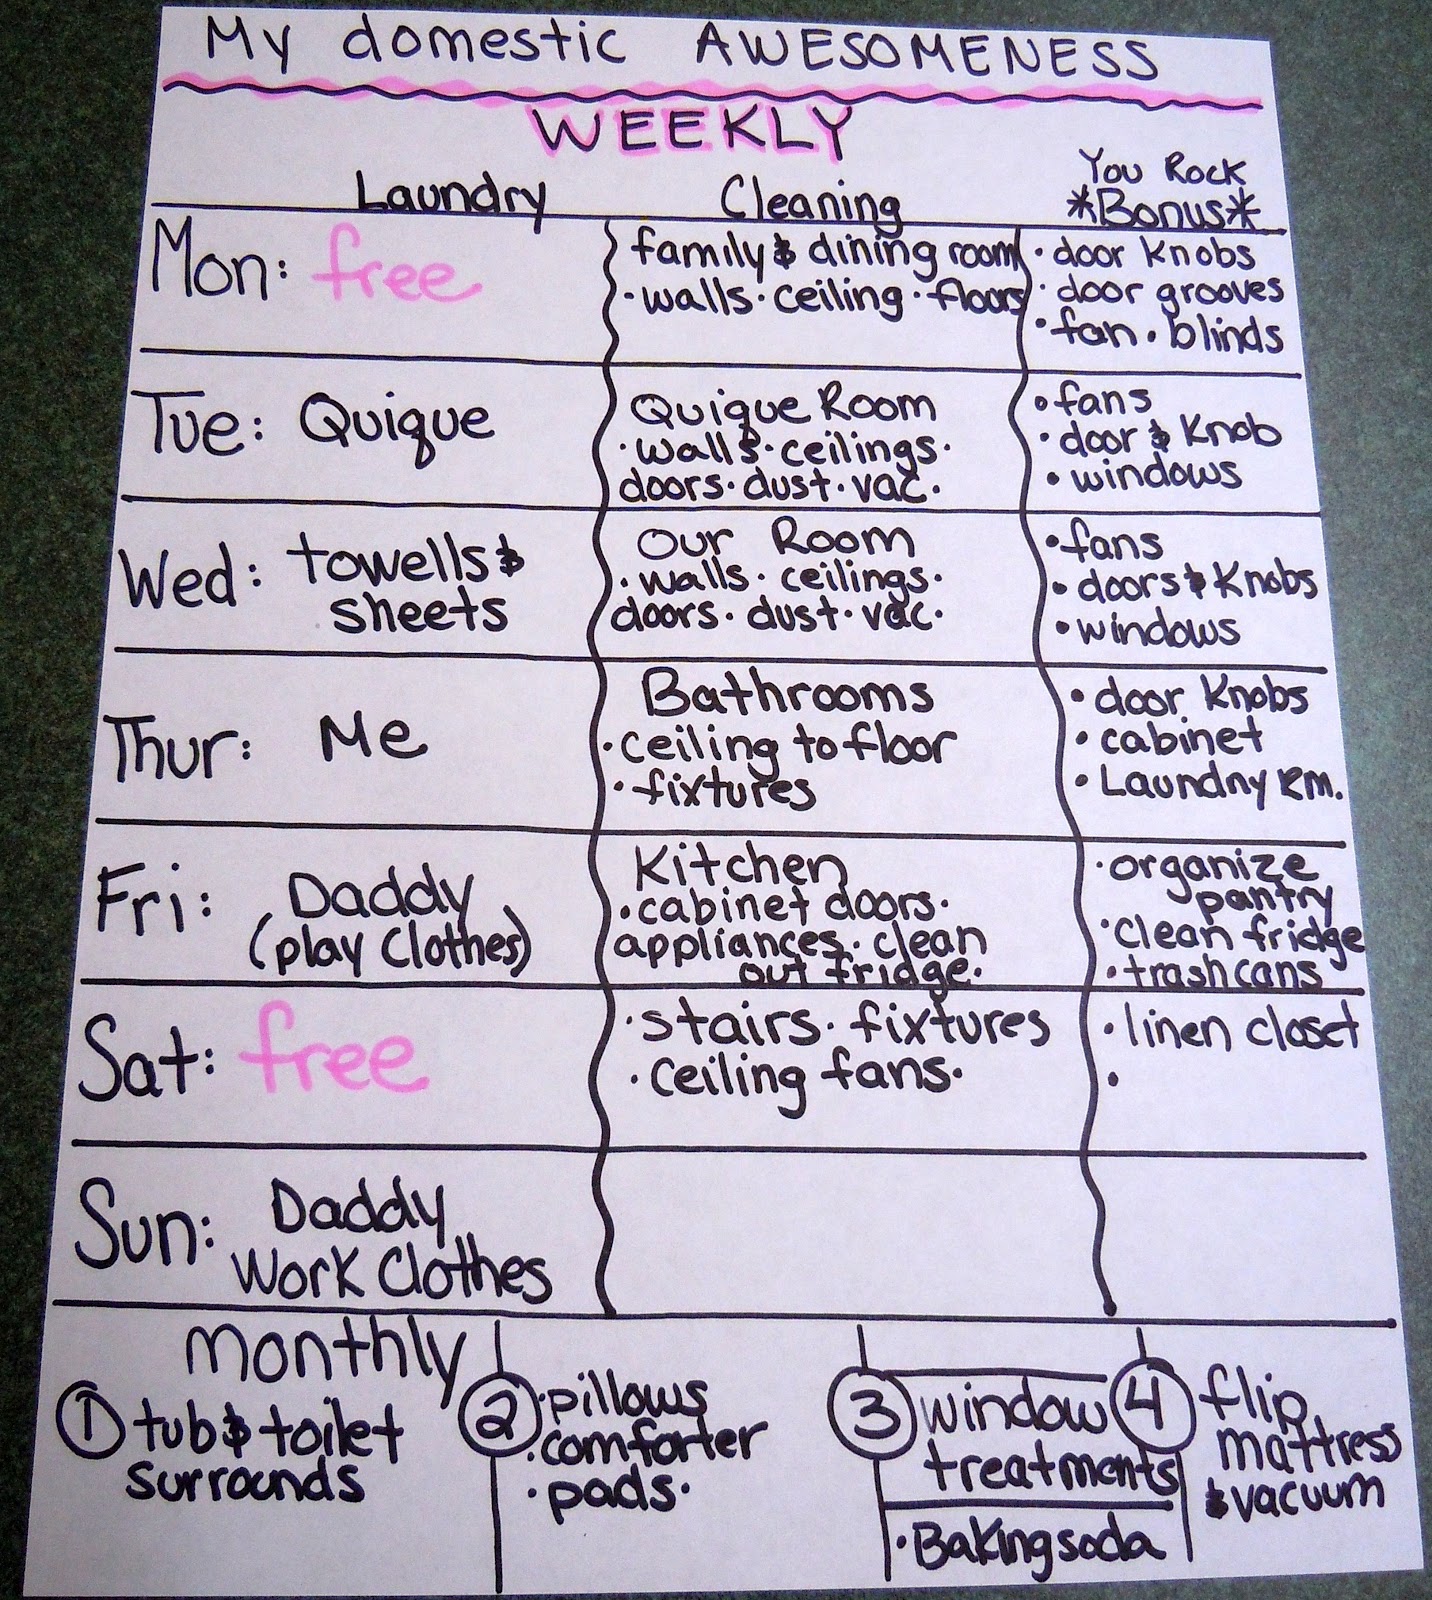 My domestic AWESOMENESS
WEEKLY
Laundry
Cleaning
You Rock
*Bonus*
Mon: free
family & dining room
·walls·ceiling·floors
·door knobs
·door grooves
·fan·blinds
Tue: Quique
Quique Room
·walls·ceilings·
doors·dust·vac.
•fans
·door & Knob
•windows
Wed: towells &
sheets
Our Room
·walls·ceilings·
doors·dust·vac.
•fans
•doors & Knobs
•windows
Thur: Me
Bathrooms
·ceiling to floor
·fixtures
•door Knobs
•cabinet
•Laundry Rm.
Fri: Daddy
(play clothes)
Kitchen
·cabinet doors·
appliances·clean
out fridge.
·organize
pantry
·clean fridge
·trashcans
Sat: free
·stairs·fixtures
·ceiling fans·
·linen closet
·
Sun: Daddy
Work Clothes
Monthly
1 tub & toilet
surrounds
2 ·pillows
·comforter
·pads·
3 window
treatments
·Baking soda
4 flip
mattress
& vacuum